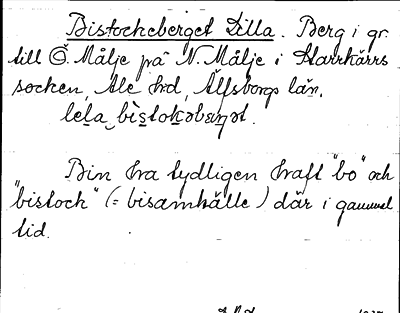 Bistockeberget Lilla. Berg i gr.
till Ö. Målje på N. Målje i Starrkärrs
socken, Ale hd, Älfsborgs län.
Bin ha tydligen haft "bo" och
"bistock" (= bisamhälle) där i gammal
tid.